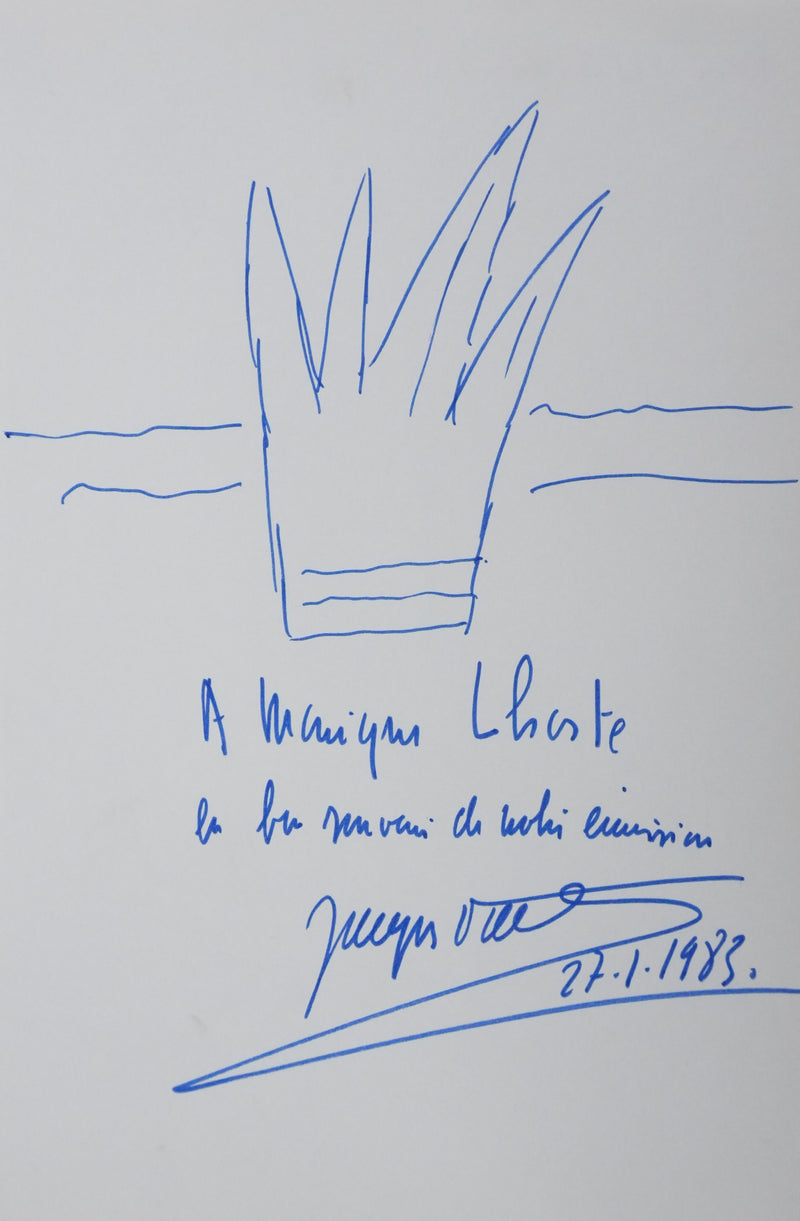 A Monique Lhoste
en bon souvenir de notre émission
Jacques
27.1.1983.